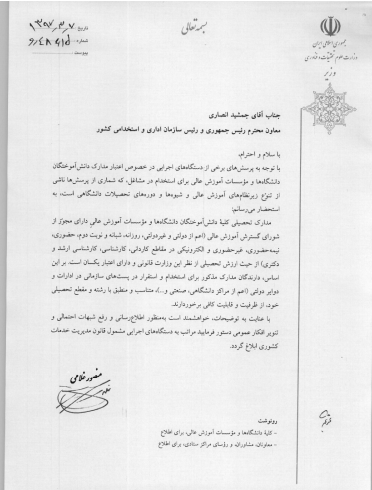 بسمه تعالی
جمهوری اسلامی ایران
وزارت علوم، تحقیقات و فناوری
وزیر
تاریخ ۱۳۹۷،۳،۷
شماره
پیوست
جناب آقای جمشید انصاری
معاون محترم رئیس جمهوری و رئیس سازمان اداری و استخدامی کشور
با سلام و احترام،
با توجه به پرسش‌های برخی از دستگاه‌های اجرایی در خصوص اعتبار مدارک دانش‌آموختگان
دانشگاه‌ها و مؤسسات آموزش عالی برای استخدام در مشاغل، که شماری از پرسش‌ها ناشی
از تنوع زیرنظام‌های آموزش عالی و شیوه‌ها و دوره‌های تحصیلات دانشگاهی است، به
استحضار می‌رساند:
مدارک تحصیلی کلیهٔ دانش‌آموختگان دانشگاه‌ها و مؤسسات آموزش عالی دارای مجوز از
شورای گسترش آموزش عالی (اعم از دولتی و غیردولتی، روزانه، شبانه و نوبت دوم، حضوری،
نیمه‌حضوری، غیرحضوری و الکترونیکی در مقاطع کاردانی، کارشناسی، کارشناسی ارشد و
دکتری) از حیث ارزش تحصیلی از نظر این وزارت قانونی و دارای اعتبار یکسان است. بر این
اساس، دارندگان مدارک مذکور برای استخدام و استقرار در پست‌های سازمانی در ادارات و
دوایر دولتی (اعم از مراکز دانشگاهی، صنعتی و...)، متناسب و منطبق با رشته و مقطع تحصیلی
خود، از ظرفیت و قابلیت کافی برخوردارند.
با عنایت به توضیحات، خواهشمند است به‌منظور اطلاع‌رسانی و رفع شبهات احتمالی و
تنویر افکار عمومی دستور فرمایید مراتب به دستگاه‌های اجرایی مشمول قانون مدیریت خدمات
کشوری ابلاغ گردد.
منصور غلامی
رونوشت
- کلیهٔ دانشگاه‌ها و مؤسسات آموزش عالی، برای اطلاع
- معاونان، مشاوران، و رؤسای مراکز ستادی، برای اطلاع